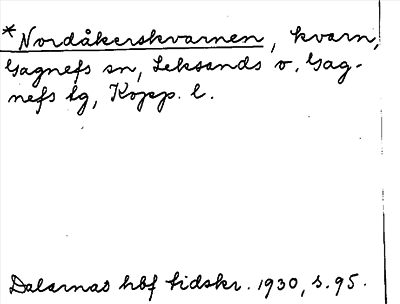 *Nordåkerskvarnen, kvarn,
Gagnefs sn, Leksands o. Gag-
nefs tg, Kopp. l.
Dalarnas hbf tidskr. 1930, s. 95.